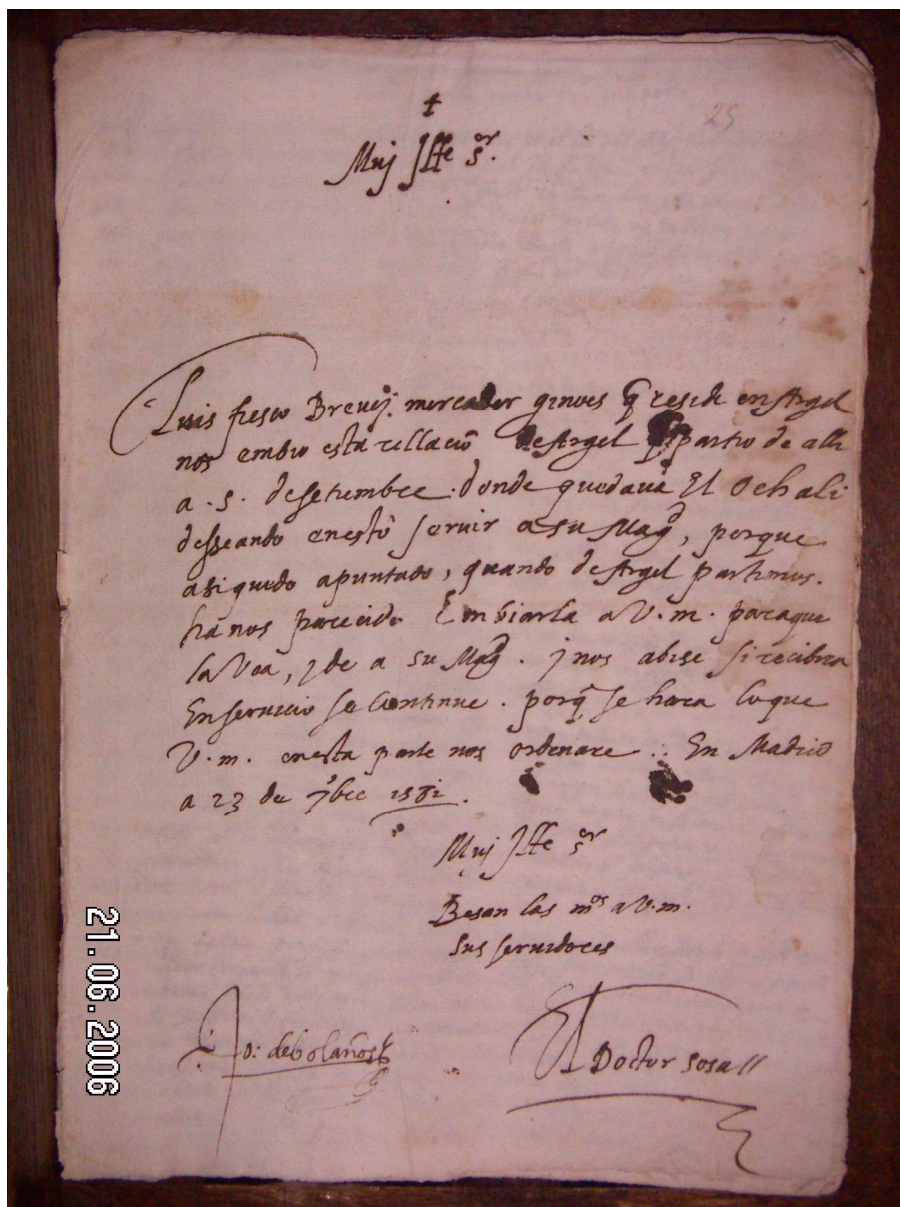 +
25
Muy Ille s.or
Luis fiesco Brevez. mercader ginoves q̃ reside en Argel
nos embio esta rellació de Argel partio de alli
a .5. de setiembre. donde quedava El Ochali
desseando en esto servir a su Mag.d, porque
asi quedo apuntado, quando de Argel partimos.
hanos parecido Embiarla a V.m. paraque
la Vea, y de a su Mag.d. y nos abise si recibira
En servicio se continue. porq̃ se hara lo que
V.m. en esta parte nos ordenare. En Madrid
a 23 de 7bre 1581.
Muy Ille s.or
Besan las m.os a V.m.
sus servidores
Jo: de bolaños
El Doctor Sosa
21.06.2006